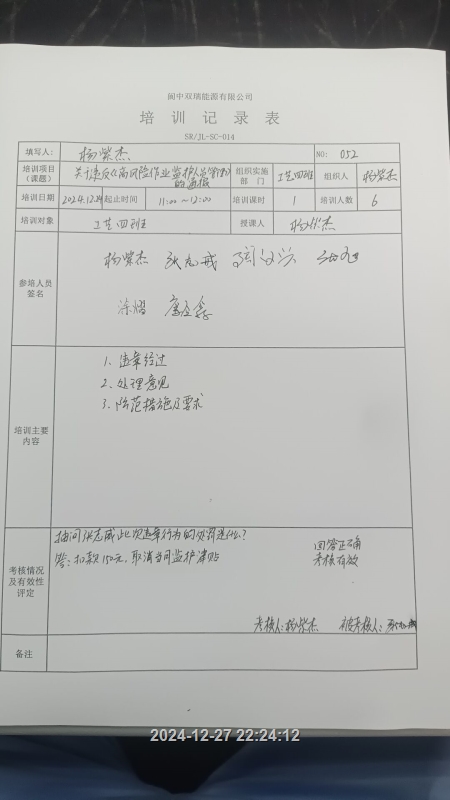 阆中双瑞能源有限公司
培训记录表
SR/JL-SC-014
填写人: 杨紫杰 NO: 052
培训项目(课题) 关于违反《高风险作业监护人员管理》的通报 组织实施部门 工艺四班 组织人 杨紫杰
培训日期 2024.12.24 起止时间 11:00~12:00 培训课时 1 培训人数 6
培训对象 工艺四班 授课人 杨紫杰
参培人员签名
杨紫杰 张志威
涂熠
培训主要内容
1、违章经过
2、处理意见
3、防范措施及要求
考核情况及有效性评定
抽问张志威此次违章行为的处罚是什么?
答:扣款150元,取消当月监护津贴
回答正确
考核有效
考核人:杨紫杰 被考核人:张志威
备注
2024-12-27 22:24:12